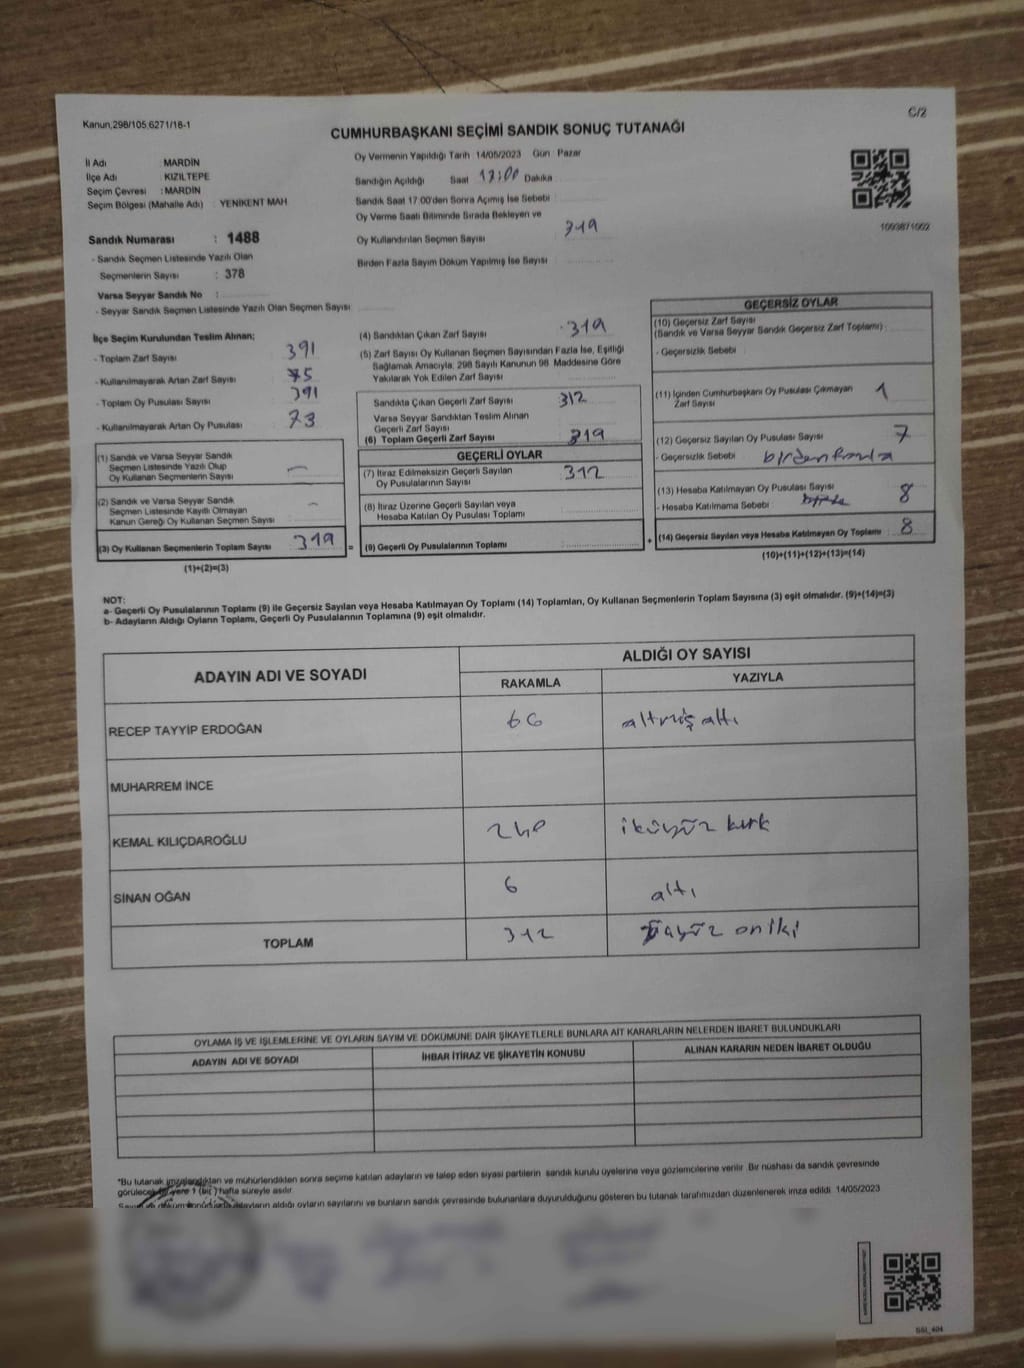 Kanun,298/105,6271/16-1
C/2
CUMHURBAŞKANI SEÇİMİ SANDIK SONUÇ TUTANAĞI
İl Adı : MARDİN
İlçe Adı : KIZILTEPE
Seçim Çevresi : MARDİN
Seçim Bölgesi (Mahalle Adı) : YENİKENT MAH
Sandık Numarası : 1488
- Sandık Seçmen Listesinde Yazılı Olan
Seçmenlerin Sayısı : 378
Varsa Seyyar Sandık No :
- Seyyar Sandık Seçmen Listesinde Yazılı Olan Seçmen Sayısı
Oy Vermenin Yapıldığı Tarih : 14/05/2023 Gün : Pazar
Sandığın Açıldığı Saat 17:00 Dakika
Sandık Saat 17:00'den Sonra Açımış İse Sebebi :
Oy Verme Saati Bitiminde Sırada Bekleyen ve
Oy Kullandırılan Seçmen Sayısı 319
Birden Fazla Sayım Döküm Yapılmış İse Sayısı
1093871002
İlçe Seçim Kurulundan Teslim Alınan;
- Toplam Zarf Sayısı 391
- Kullanılmayarak Artan Zarf Sayısı 75
- Toplam Oy Pusulası Sayısı 391
- Kullanılmayarak Artan Oy Pusulası 73
(1) Sandık ve Varsa Seyyar Sandık
Seçmen Listesinde Yazılı Olup
Oy Kullanan Seçmenlerin Sayısı —
(2) Sandık ve Varsa Seyyar Sandık
Seçmen Listesinde Kayıtlı Olmayan
Kanun Gereği Oy Kullanan Seçmen Sayısı —
(3) Oy Kullanan Seçmenlerin Toplam Sayısı 319 =
(1)+(2)=(3)
(4) Sandıktan Çıkan Zarf Sayısı 319
(5) Zarf Sayısı Oy Kullanan Seçmen Sayısından Fazla İse, Eşitliği
Sağlamak Amacıyla, 298 Sayılı Kanunun 98. Maddesine Göre
Yakılarak Yok Edilen Zarf Sayısı
Sandıkta Çıkan Geçerli Zarf Sayısı 312
Varsa Seyyar Sandıktan Teslim Alınan
Geçerli Zarf Sayısı
(6) Toplam Geçerli Zarf Sayısı 319
GEÇERLİ OYLAR
(7) İtiraz Edilmeksizin Geçerli Sayılan
Oy Pusulalarının Sayısı 312
(8) İtiraz Üzerine Geçerli Sayılan veya
Hesaba Katılan Oy Pusulası Toplamı
(9) Geçerli Oy Pusulalarının Toplamı +
GEÇERSİZ OYLAR
(10) Geçersiz Zarf Sayısı
(Sandık ve Varsa Seyyar Sandık Geçersiz Zarf Toplamı) :
- Geçersizlik Sebebi :
(11) İçinden Cumhurbaşkanı Oy Pusulası Çıkmayan
Zarf Sayısı 1
(12) Geçersiz Sayılan Oy Pusulası Sayısı 7
- Geçersizlik Sebebi : birden fazla
(13) Hesaba Katılmayan Oy Pusulası Sayısı 8
- Hesaba Katılmama Sebebi
(14) Geçersiz Sayılan veya Hesaba Katılmayan Oy Toplamı : 8
(10)+(11)+(12)+(13)=(14)
NOT:
a- Geçerli Oy Pusulalarının Toplamı (9) ile Geçersiz Sayılan veya Hesaba Katılmayan Oy Toplamı (14) Toplamları, Oy Kullanan Seçmenlerin Toplam Sayısına (3) eşit olmalıdır. (9)+(14)=(3)
b- Adayların Aldığı Oyların Toplamı, Geçerli Oy Pusulalarının Toplamına (9) eşit olmalıdır.
ADAYIN ADI VE SOYADI
ALDIĞI OY SAYISI
RAKAMLA YAZIYLA
RECEP TAYYİP ERDOĞAN 66 altmış altı
MUHARREM İNCE
KEMAL KILIÇDAROĞLU 240 ikiyüz kırk
SİNAN OĞAN 6 altı
TOPLAM 312 üçyüz oniki
OYLAMA İŞ VE İŞLEMLERİNE VE OYLARIN SAYIM VE DÖKÜMÜNE DAİR ŞİKAYETLERLE BUNLARA AİT KARARLARIN NELERDEN İBARET BULUNDUKLARI
ADAYIN ADI VE SOYADI İHBAR İTİRAZ VE ŞİKAYETİN KONUSU ALINAN KARARIN NEDEN İBARET OLDUĞU
*Bu tutanak imzalandıktan ve mühürlendikten sonra seçime katılan adayların ve talep eden siyasi partilerin sandık kurulu üyelerine veya gözlemcilerine verilir. Bir nüshası da sandık çevresinde
görülecek bir yere 1 (bir) hafta süreyle asılır.
Sayım ve döküm sonucunda adayların aldığı oyların sayılarını ve bunların sandık çevresinde bulunanlara duyurulduğunu gösteren bu tutanak tarafımızdan düzenlenerek imza edildi. 14/05/2023